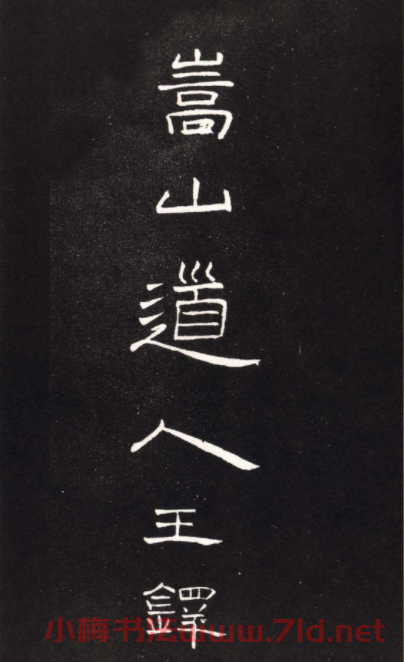 嵩山道人王鐸
小梅书法www.7ld.net